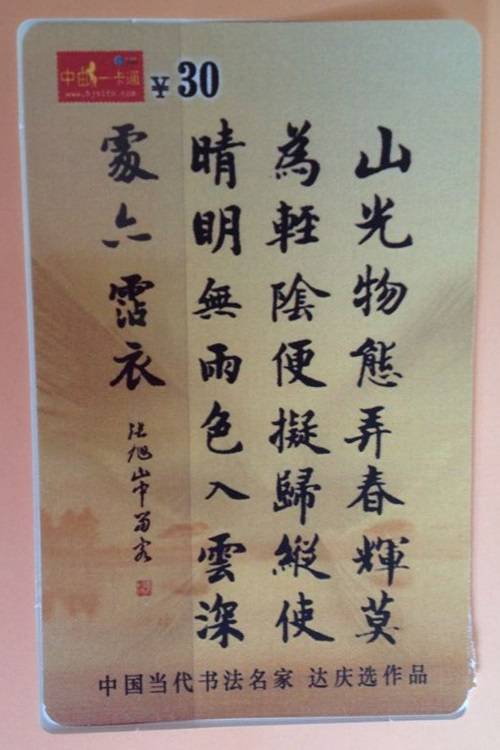 中由一卡通
¥30
山光物態弄春輝莫
為輊陰便擬歸縱使
晴明無雨色入雲深
處亦霑衣
張旭山中留客
中国当代书法名家 达庆选作品